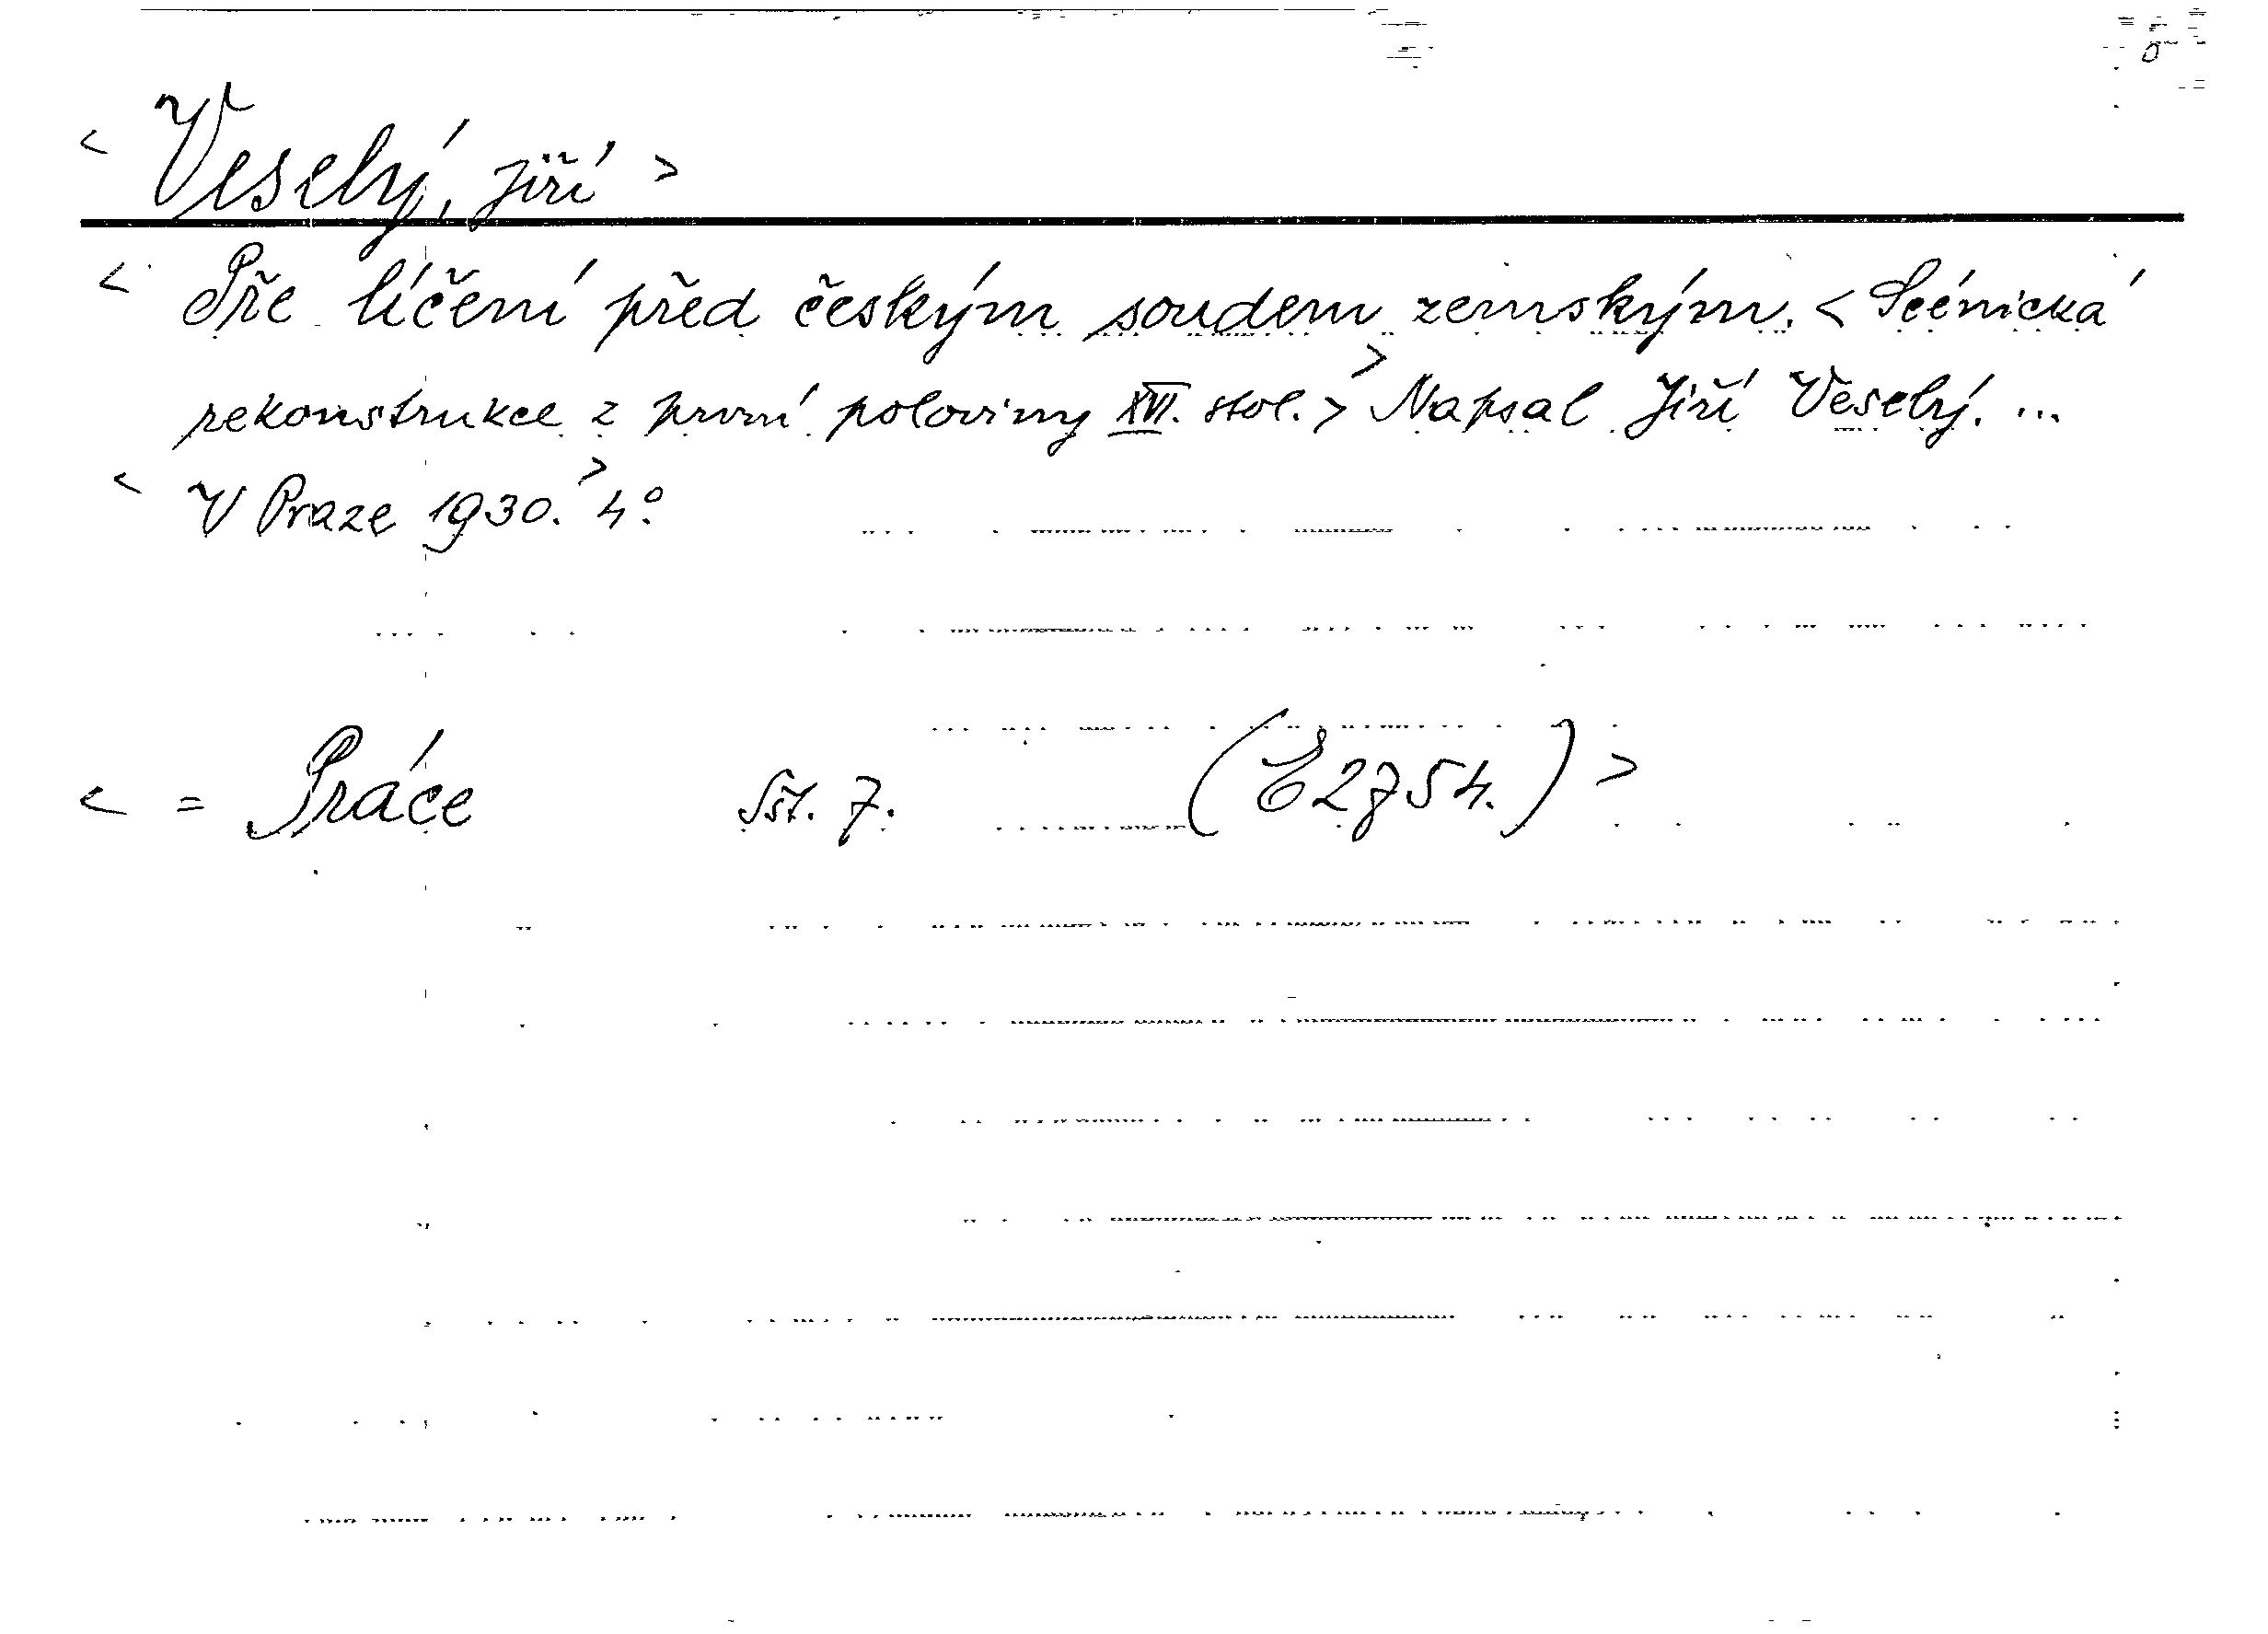 < Veselý, Jiří >
< Pře líčení před českým soudem zemským. < Scénická
rekonstrukce z první poloviny XVI. stol. > > Napsal Jiří Veselý. ...
< V Praze 1930. > 4°.
< = Práce Sšt. 7. (E2754.) >